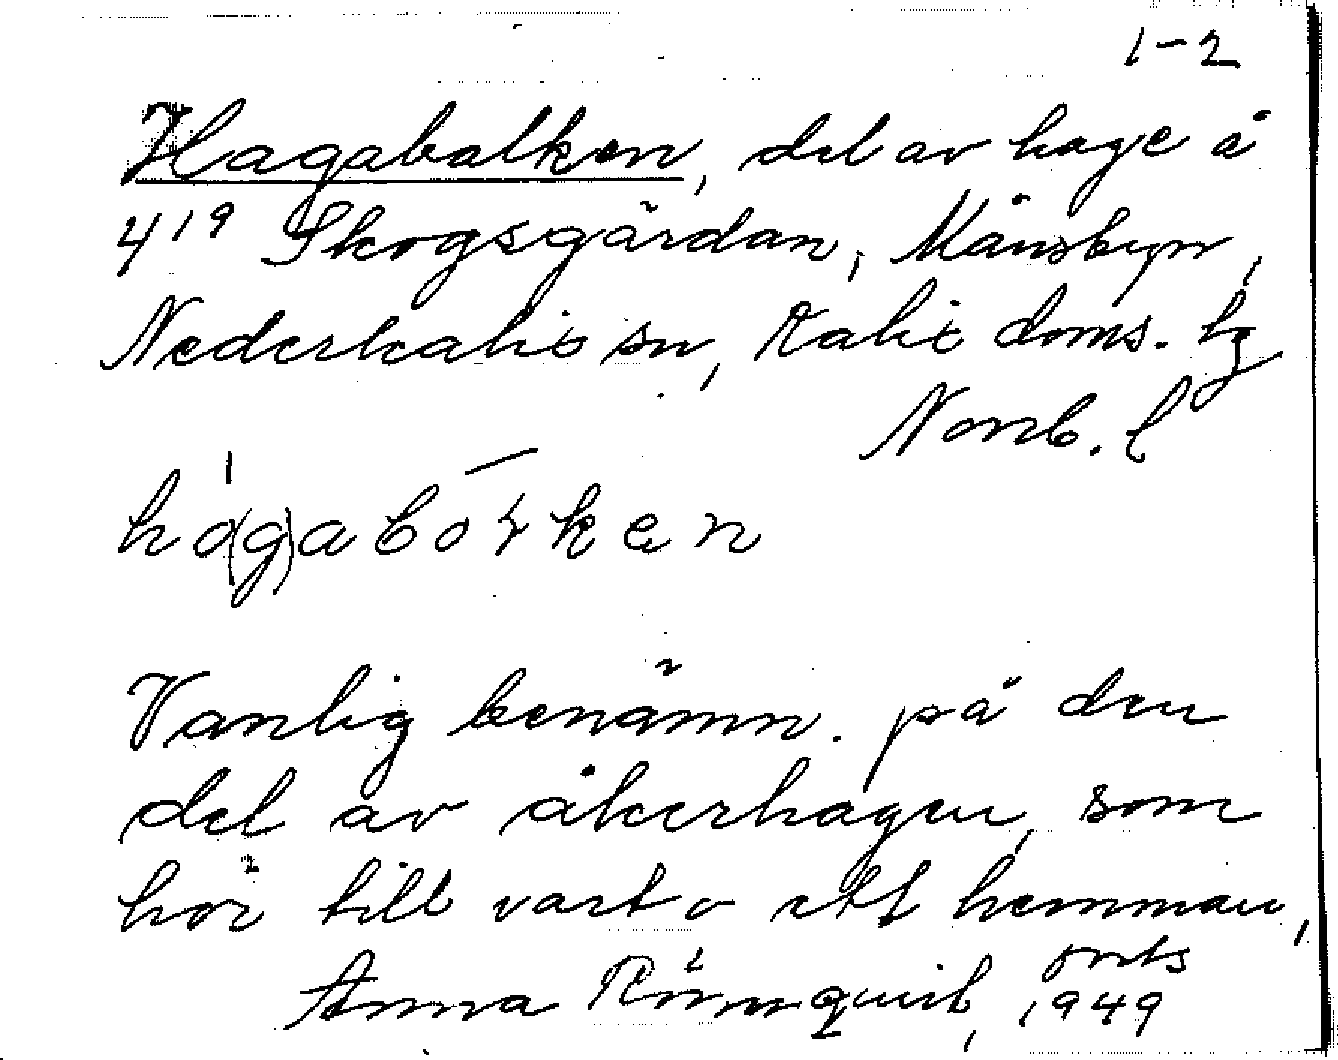 1-2
Hagabalken, del av hage å
4¹⁹ Skogsgärdan, Månsbyn,
Nederkalix sn, Kalix doms. hg
Norrb. l
Vanlig benämn. på den
del av åkerhagen, som
hör till vart o ett hemman,
Anna Rönnquist, orts
1949